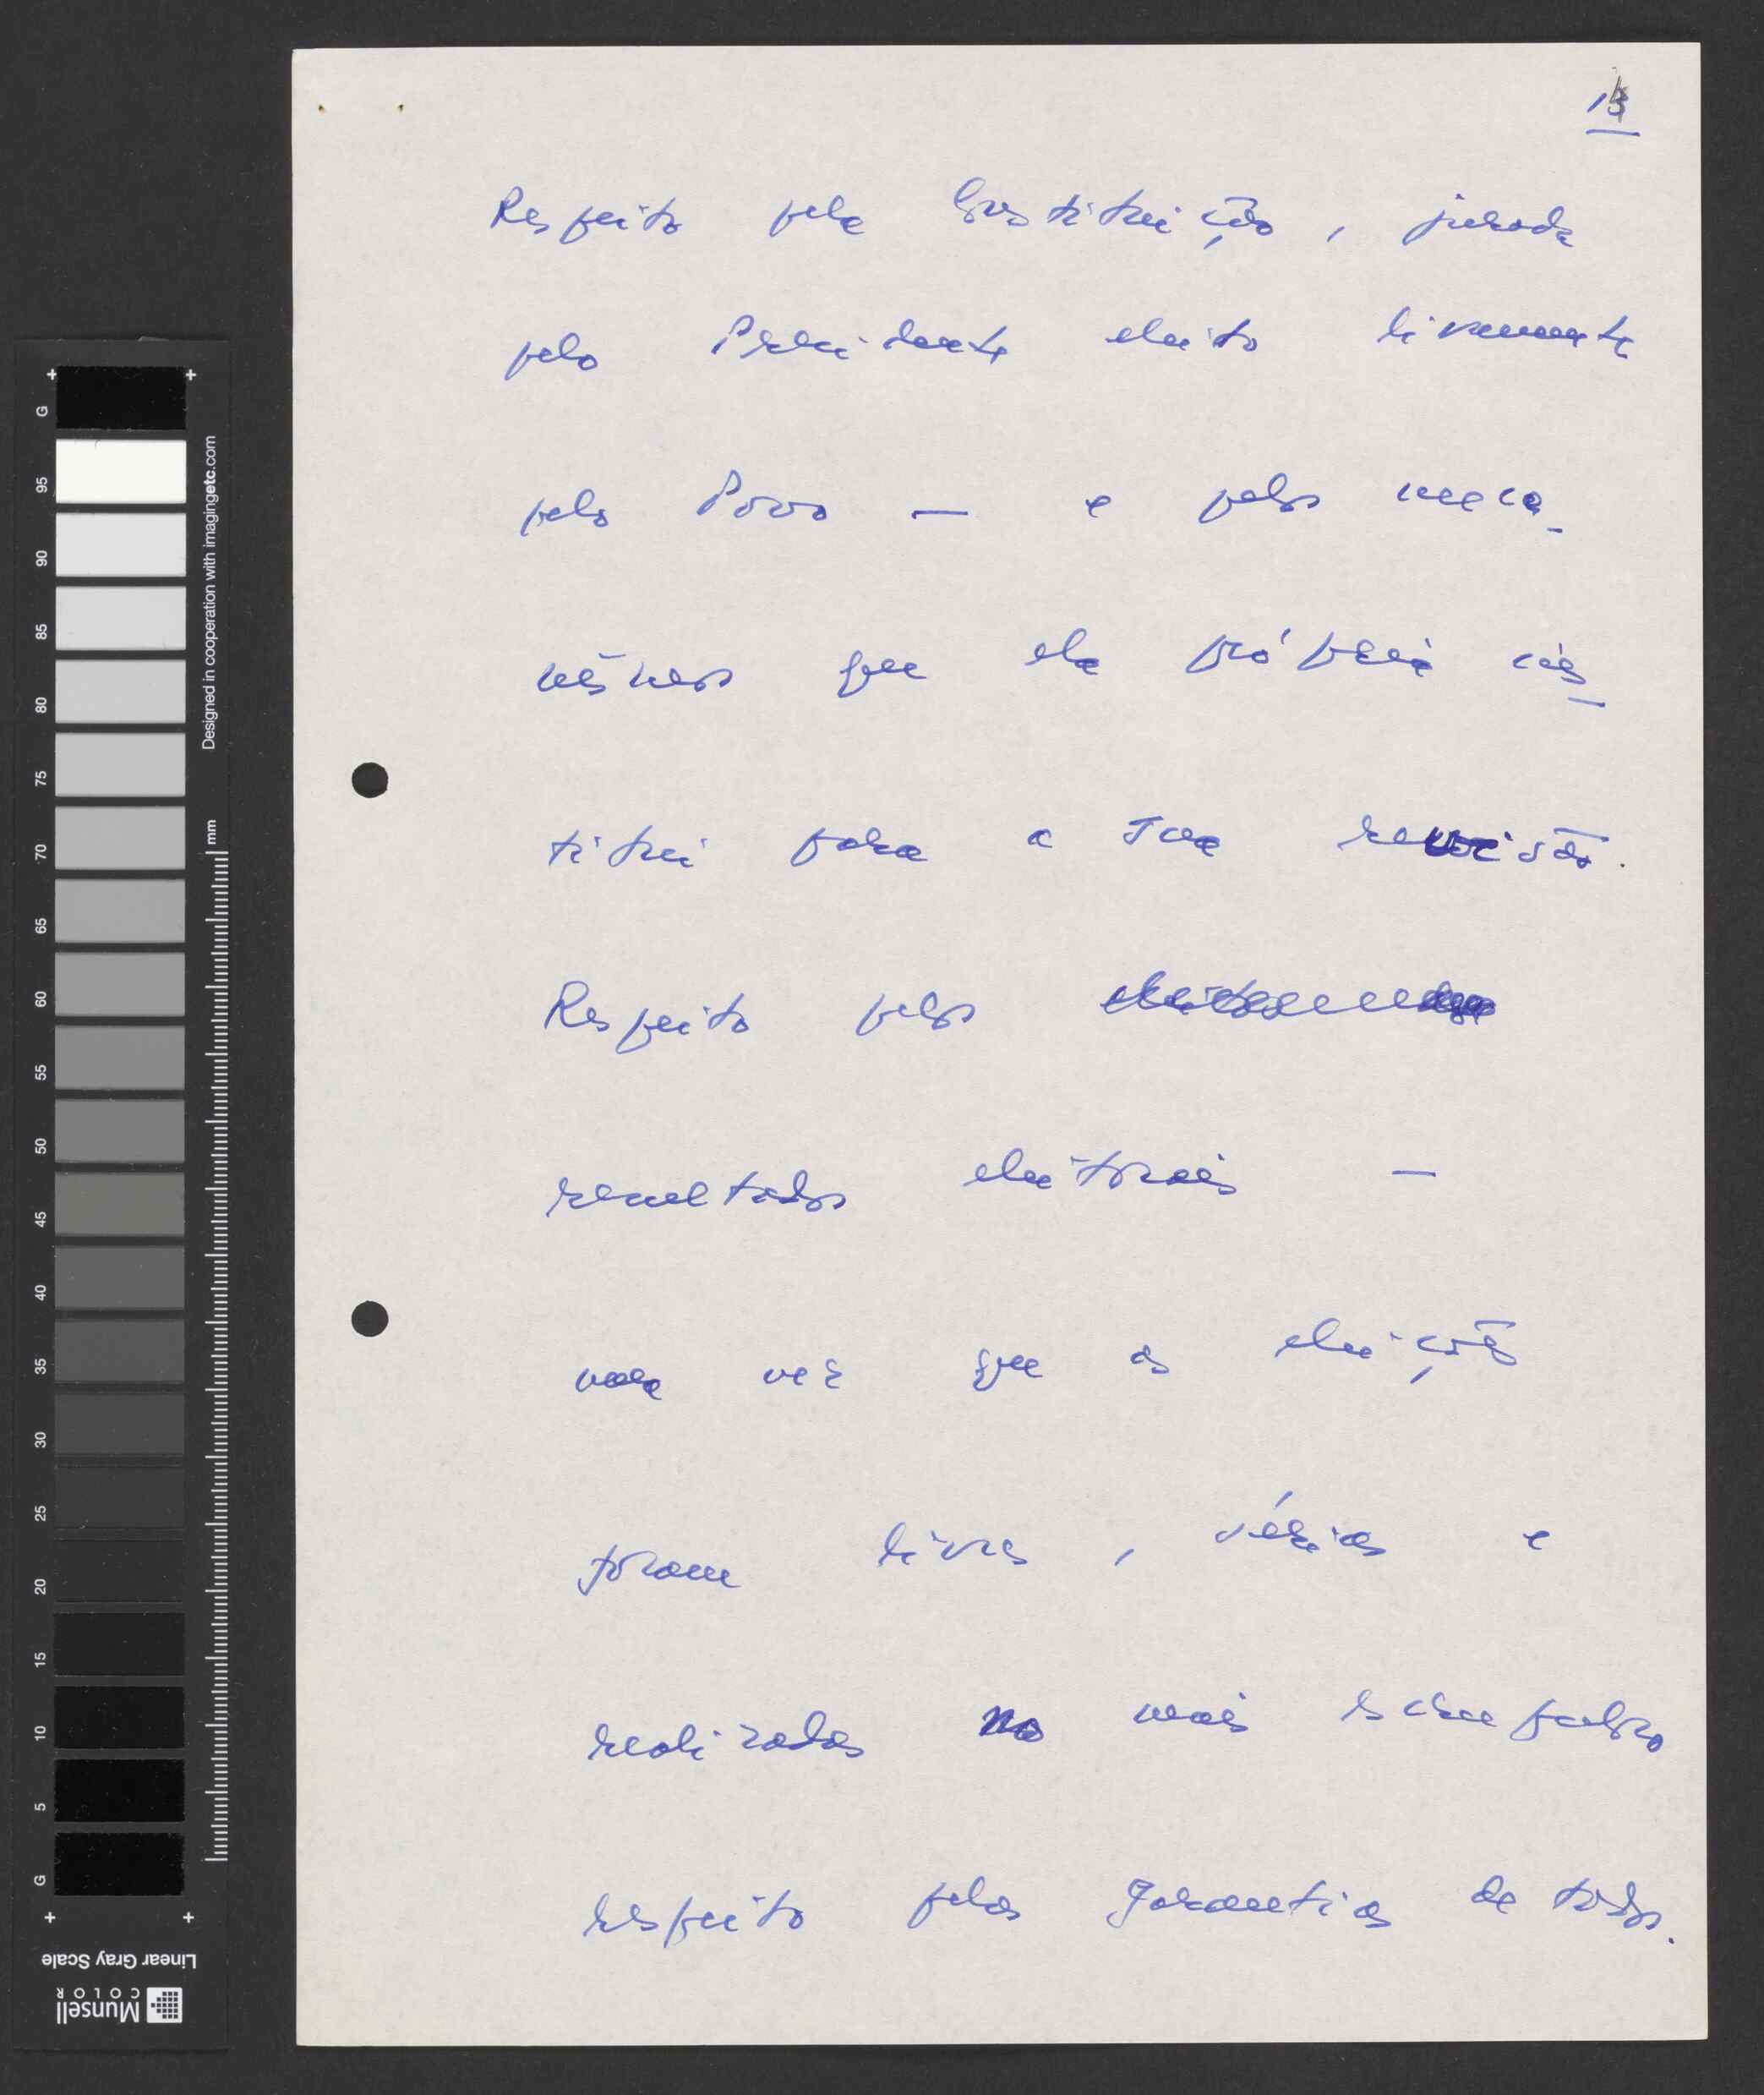 Respeito pela Constituição, jurada
pelo Presidente eleito livremente
pelo Povo — e pelos meca-
nismos que ela própria ins-
titui para a sua revisão.
Respeito pelos
resultados eleitorais —
uma vez que as eleições
foram livres, sérias e
realizadas no mais escrupuloso
respeito pelas garantias de todos.
G
95
90
85
80
75
70
65
60
55
50
45
40
35
30
25
20
15
10
5
G
Designed in cooperation with imagingetc.com
mm
Linear Gray Scale
Munsell
COLOR